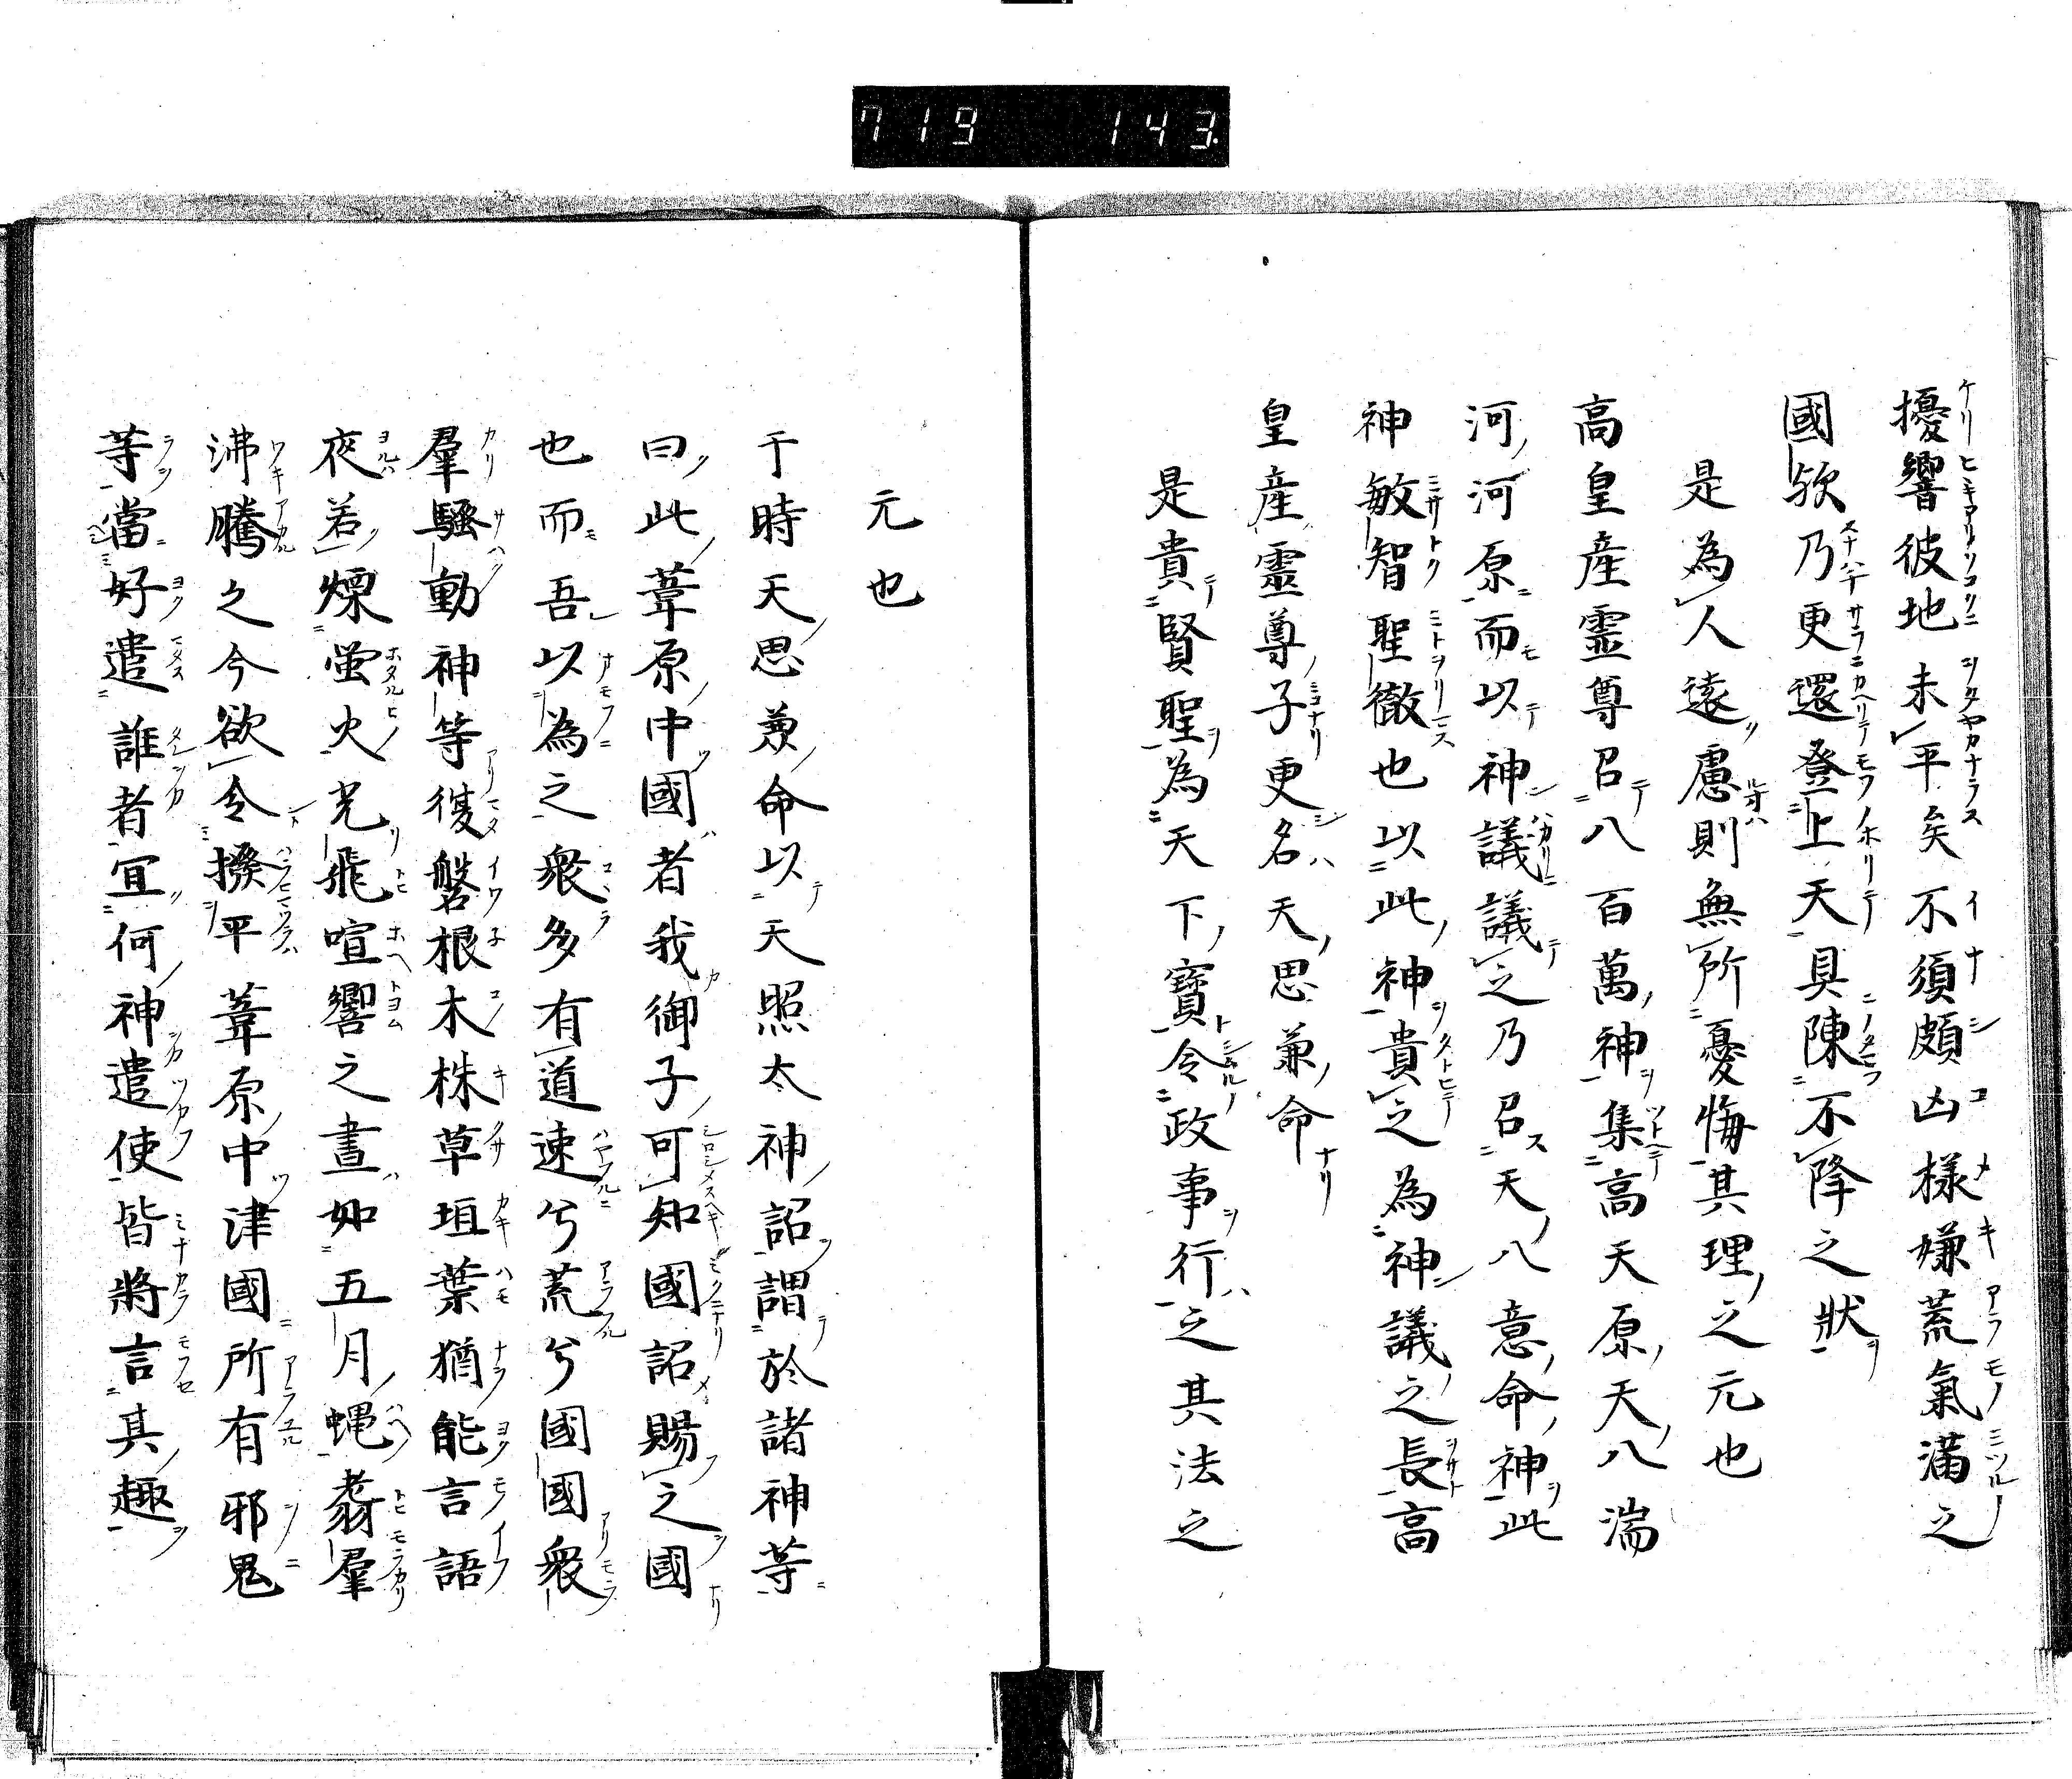 719 143
擾響彼地未平矣不須頗凶様嫌荒氣滿之
國欤乃更還登上天具陳不降之狀
是為人遠慮則無所憂悔其理之元也
高皇産靈尊召八百萬神集高天原天八湍
河河原而以神議議之乃召天八意命神此
神敏智聖徹也以此神貴之為神議之長高
皇産靈尊子更名天思兼命
是貴賢聖為天下寶令政事行之其法之
元也
于時天思兼命以天照太神詔謂於諸神等
曰此葦原中國者我御子可知國詔賜之國
也而吾以為之衆多有道速兮荒兮國國衆
羣騷動神等復磐根木株草垣葉猶能言語
夜若熛螢火光飛喧響之晝如五月蝿翥羣
沸騰之今欲令撥平葦原中津國所有邪鬼
等當好遣誰者宜何神遣使皆將言其趣